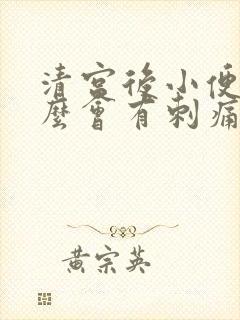 清宮後小便
麼會有刺痛
黃宗英